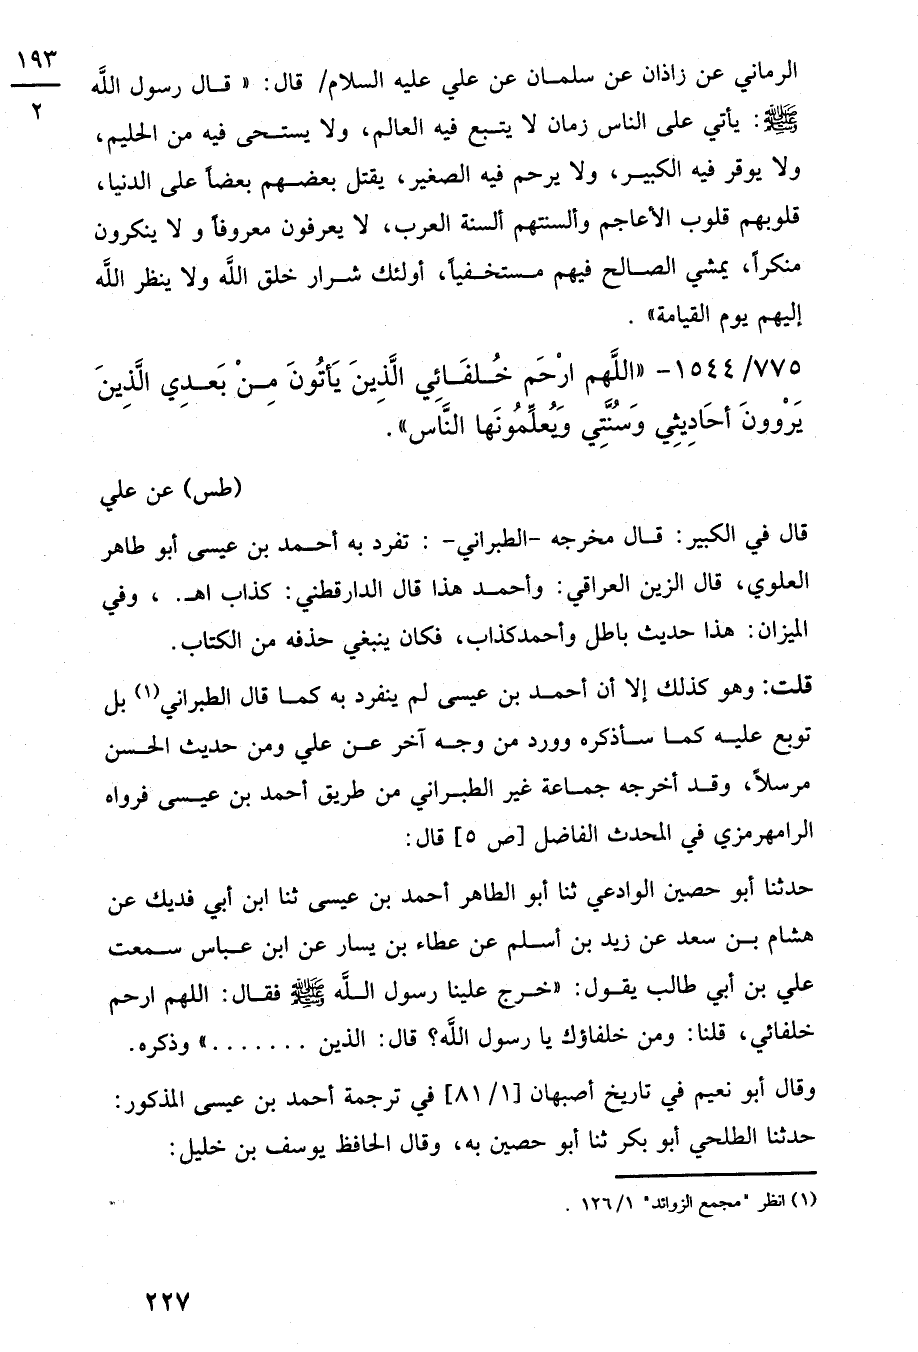 ١٩٣
٢
الرماني عن زاذان عن سلمان عن علي عليه السلام/ قال: « قال رسول اللَّه
ﷺ: يأتي على الناس زمان لا يتبع فيه العالم، ولا يستحى فيه من الحليم،
ولا يوقر فيه الكبير، ولا يرحم فيه الصغير، يقتل بعضهم بعضاً على الدنيا،
قلوبهم قلوب الأعاجم وألسنتهم ألسنة العرب، لا يعرفون معروفاً و لا ينكرون
منكراً، يمشي الصالح فيهم مستخفياً، أولئك شرار خلق اللَّه ولا ينظر اللَّه
إليهم يوم القيامة» .
١٥٤٤/٧٧٥- «اللَّهم ارْحَم خُلفَائِي الَّذِينَ يَأتُونَ مِنْ بَعدِي الَّذِينَ
يَرْوونَ أحَادِيثِي وَسُنَّتِي وَيُعلِّمُونَها النَّاس».
(طس) عن علي
قال في الكبير: قال مخرجه -الطبراني- : تفرد به أحمد بن عيسى أبو طاهر
العلوي، قال الزين العراقي: وأحمد هذا قال الدارقطني: كذاب اهـ. ، وفي
الميزان: هذا حديث باطل وأحمدكذاب، فكان ينبغي حذفه من الكتاب.
قلت: وهو كذلك إلا أن أحمد بن عيسى لم ينفرد به كما قال الطبراني(١) بل
توبع عليه كما سأذكره وورد من وجه آخر عن علي ومن حديث الحسن
مرسلاً، وقد أخرجه جماعة غير الطبراني من طريق أحمد بن عيسى فرواه
الرامهرمزي في المحدث الفاضل [ص ٥] قال:
حدثنا أبو حصين الوادعي ثنا أبو الطاهر أحمد بن عيسى ثنا ابن أبي فديك عن
هشام بن سعد عن زيد بن أسلم عن عطاء بن يسار عن ابن عباس سمعت
علي بن أبي طالب يقول: «خرج علينا رسول اللَّه ﷺ فقال: اللهم ارحم
خلفائي، قلنا: ومن خلفاؤك يا رسول اللَّه؟ قال: الذين .......» وذكره.
وقال أبو نعيم في تاريخ أصبهان [٨١/١] في ترجمة أحمد بن عيسى المذكور:
حدثنا الطلحي أبو بكر ثنا أبو حصين به، وقال الحافظ يوسف بن خليل:
(١) انظر "مجمع الزوائد" ١٢٦/١ .
٢٢٧